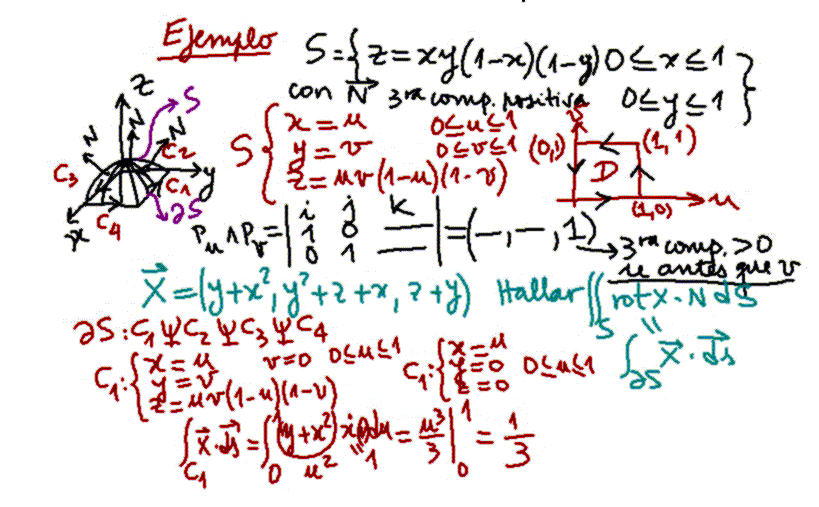 Ejemplo
S = { z = xy(1-x)(1-y) 0 ≤ x ≤ 1
con N 3ra comp. positiva 0 ≤ y ≤ 1 }
z
S
N N N
C2
C3
C1 y
x C4 ∂S
S { x = u 0≤u≤1
y = v 0≤v≤1
z = uv(1-u)(1-v)
(0,1) (1,1)
D
(1,0) u
Pu ∧ Pv = | i j k |
1 0 —
0 1 —
= (—, —, 1)
→ 3ra comp. > 0
u antes que v
X = (y+x², y²+z+x, z+y) Hallar ∬S rot X · N dS
= ∫∂S X · ds
∂S : C1 Ψ C2 Ψ C3 Ψ C4
C1: { x = u v=0 0≤u≤1
y = v
z = uv(1-u)(1-v)
C1: { x = u
y = 0 0≤u≤1
z = 0
∫C1 X · ds = ∫0^1 (y+x²) x du = u³/3 |0^1 = 1/3
u² 1